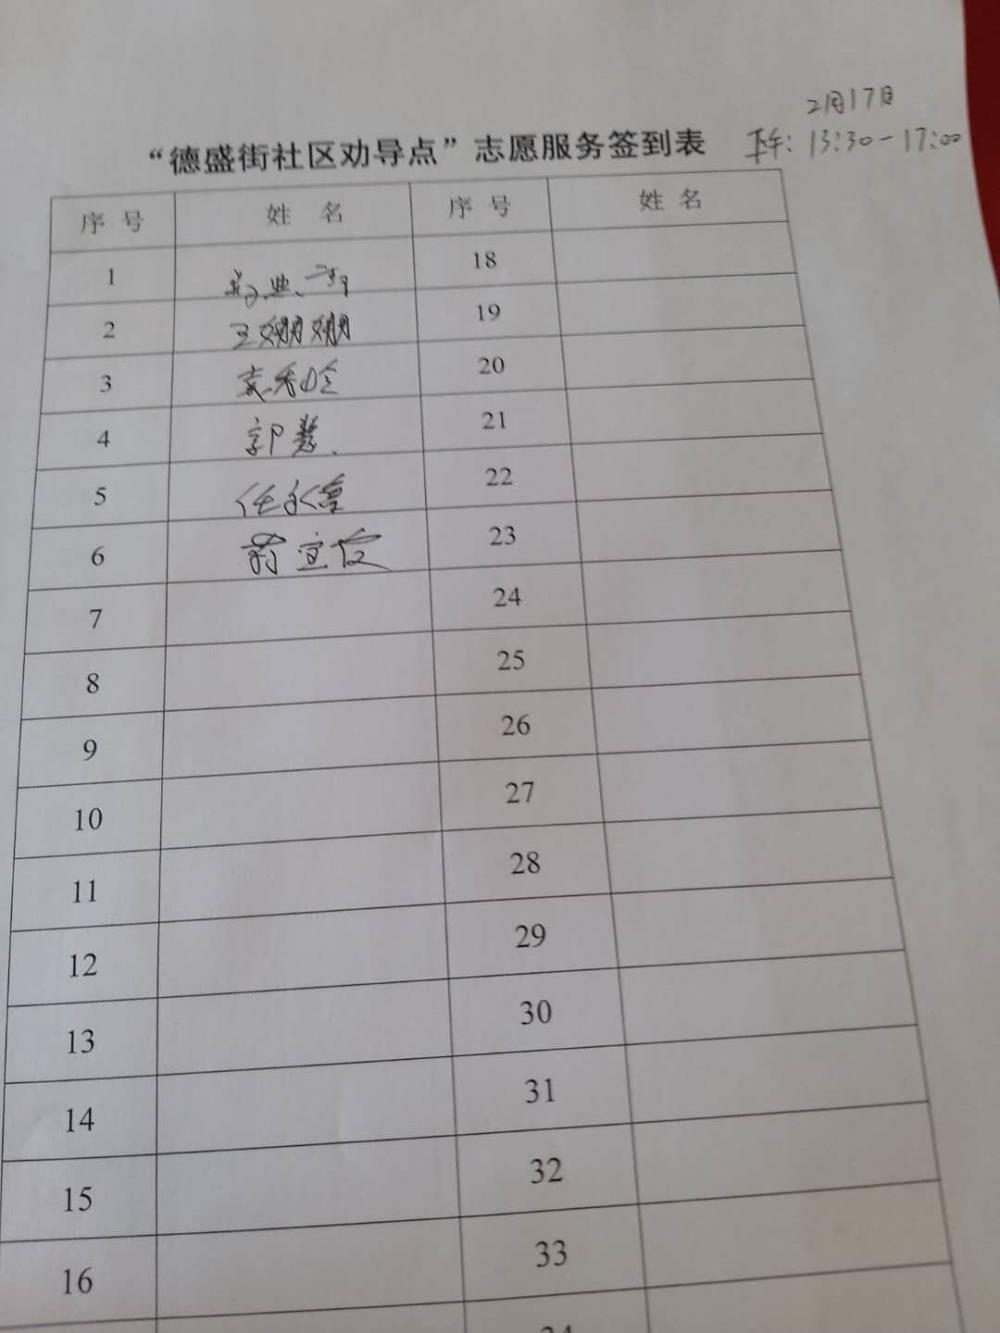 2月17日
“德盛街社区劝导点”志愿服务签到表 下午：13:30-17:00
序 号 姓 名 序 号 姓 名
1 18
2 王姗姗 19
3 袁秀岭 20
4 郭慧 21
5 任永富 22
6 23
7 24
8 25
9 26
10 27
11 28
12 29
13 30
14 31
15 32
16 33